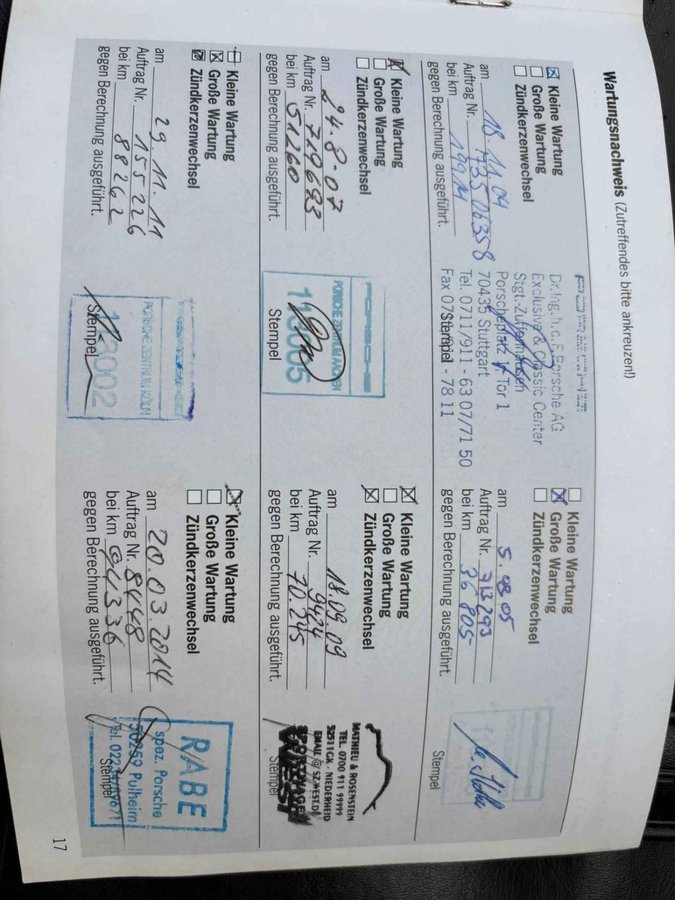 Wartungsnachweis (Zutreffendes bitte ankreuzen!)
Kleine Wartung
Große Wartung
Zündkerzenwechsel
am 18.11.04
Auftrag Nr.
bei km 19914
gegen Berechnung ausgeführt.
Dr. Ing. h.c. F. Porsche AG
Exclusive & Classic Center
Stgt.-Zuffenhausen
Porscheplatz 1 Tor 1
70435 Stuttgart
Tel. 0711/911 - 63 07/71 50
Stempel
Kleine Wartung
Große Wartung
Zündkerzenwechsel
am 5.08.05
Auftrag Nr. 713293
bei km 36 805-
gegen Berechnung ausgeführt.
Stempel
Kleine Wartung
Große Wartung
Zündkerzenwechsel
am 24.8.07
Auftrag Nr. 719683
bei km 51260
gegen Berechnung ausgeführt.
PORSCHE
Stempel
Kleine Wartung
Große Wartung
Zündkerzenwechsel
am 18.09.09
Auftrag Nr. 9424
bei km 70.245
gegen Berechnung ausgeführt.
MATHIEU & ROSENSTEIN
TEL. 0700 911 99999
EMAIL @ SZ-WEST.DE
Stempel
Kleine Wartung
Große Wartung
Zündkerzenwechsel
am 29.11.11
Auftrag Nr. 155226
bei km 88262
gegen Berechnung ausgeführt.
PORSCHE ZENTRUM KÖLN
Stempel
Kleine Wartung
Große Wartung
Zündkerzenwechsel
am 20.03.2014
Auftrag Nr. 8448
bei km 94336
gegen Berechnung ausgeführt.
RABE
spez. Porsche
50259 Pulheim
Stempel
17